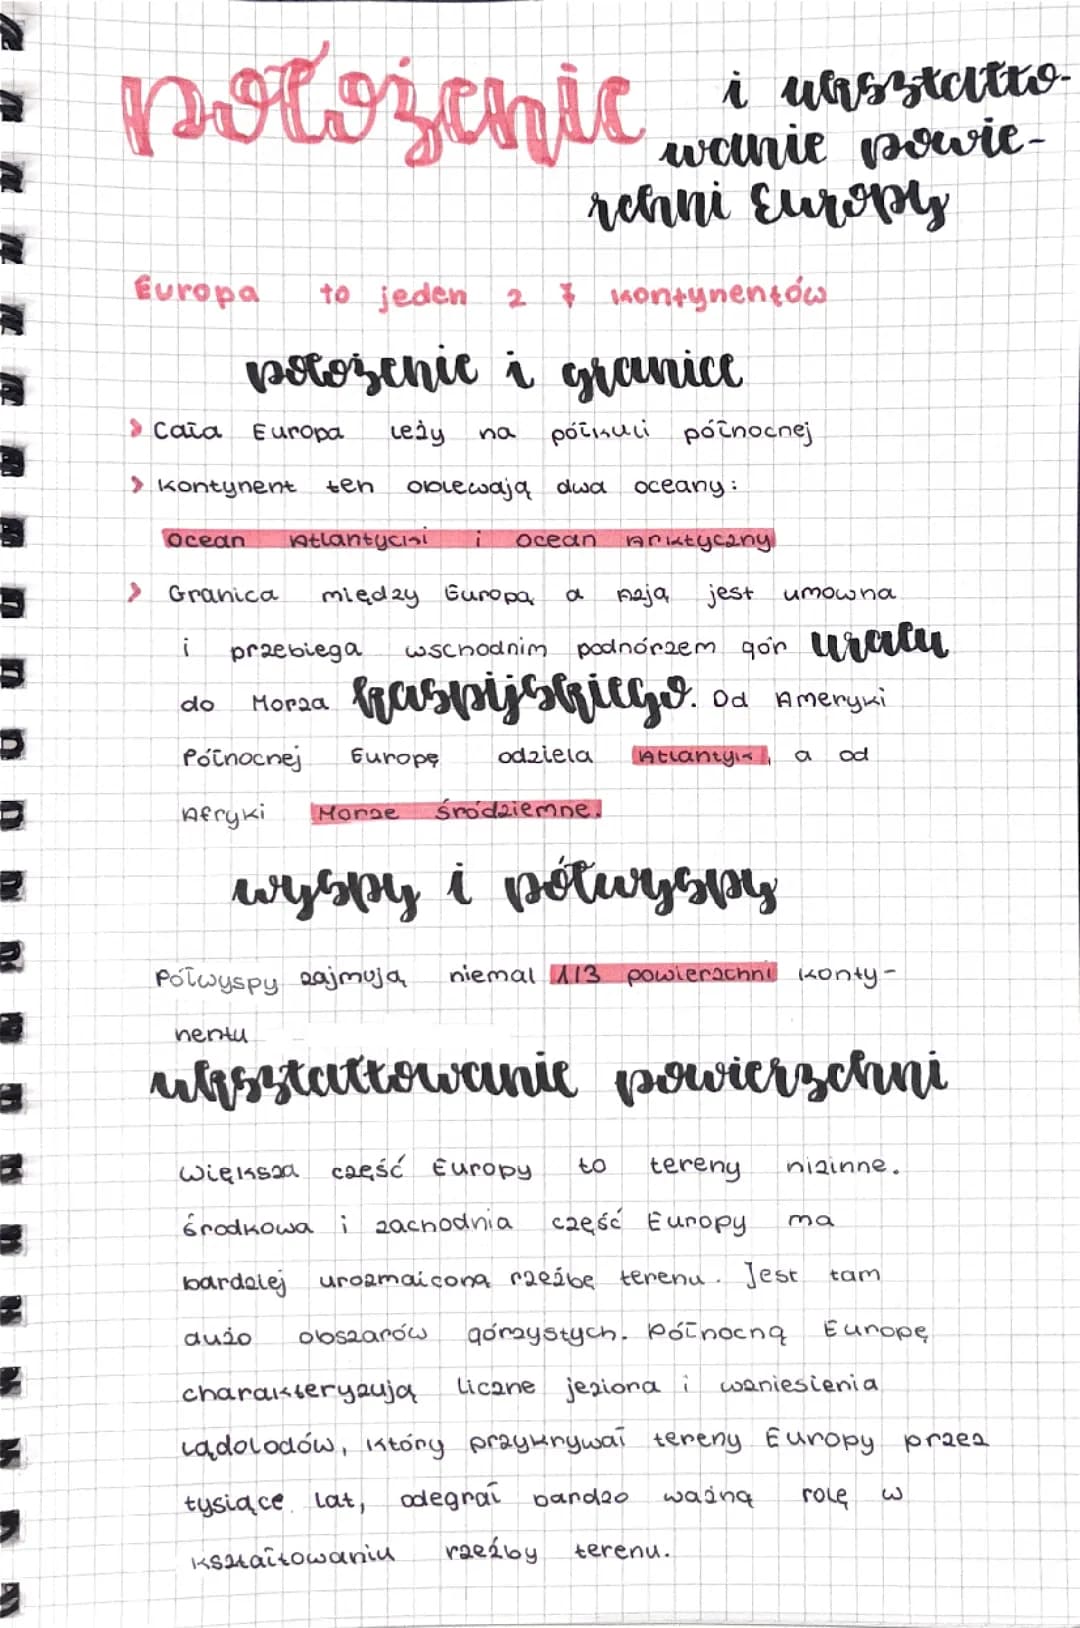 położenie i ukształto-
wanie powie-
rzchni Europy
Europa to jeden z 7 kontynentów
położenie i granice
> Cała Europa leży na półkuli północnej
> Kontynent ten oblewają dwa oceany:
Ocean Atlantycki i Ocean Arktyczny
> Granica między Europą a Azją jest umowna
i przebiega wschodnim podnórzem gór uralu
do Morza kaspijskiego. Od Ameryki
Północnej Europę odziela Atlantyk, a od
Afryki Morze śródziemne.
wyspy i półwyspy
Półwyspy zajmują niemal 1/3 powierzchni konty-
nentu
ukształtowanie powierzchni
Większa część Europy to tereny nizinne.
środkowa i zachodnia część Europy ma
bardziej urozmaiconą rzeźbę terenu. Jest tam
dużo obszarów górzystych. Północną Europę
charakteryzują liczne jeziora i wzniesienia
Lądolodów, który przykrywał tereny Europy przez
tysiące lat, odegrał bardzo ważną rolę w
kształtowaniu rzeźby terenu.